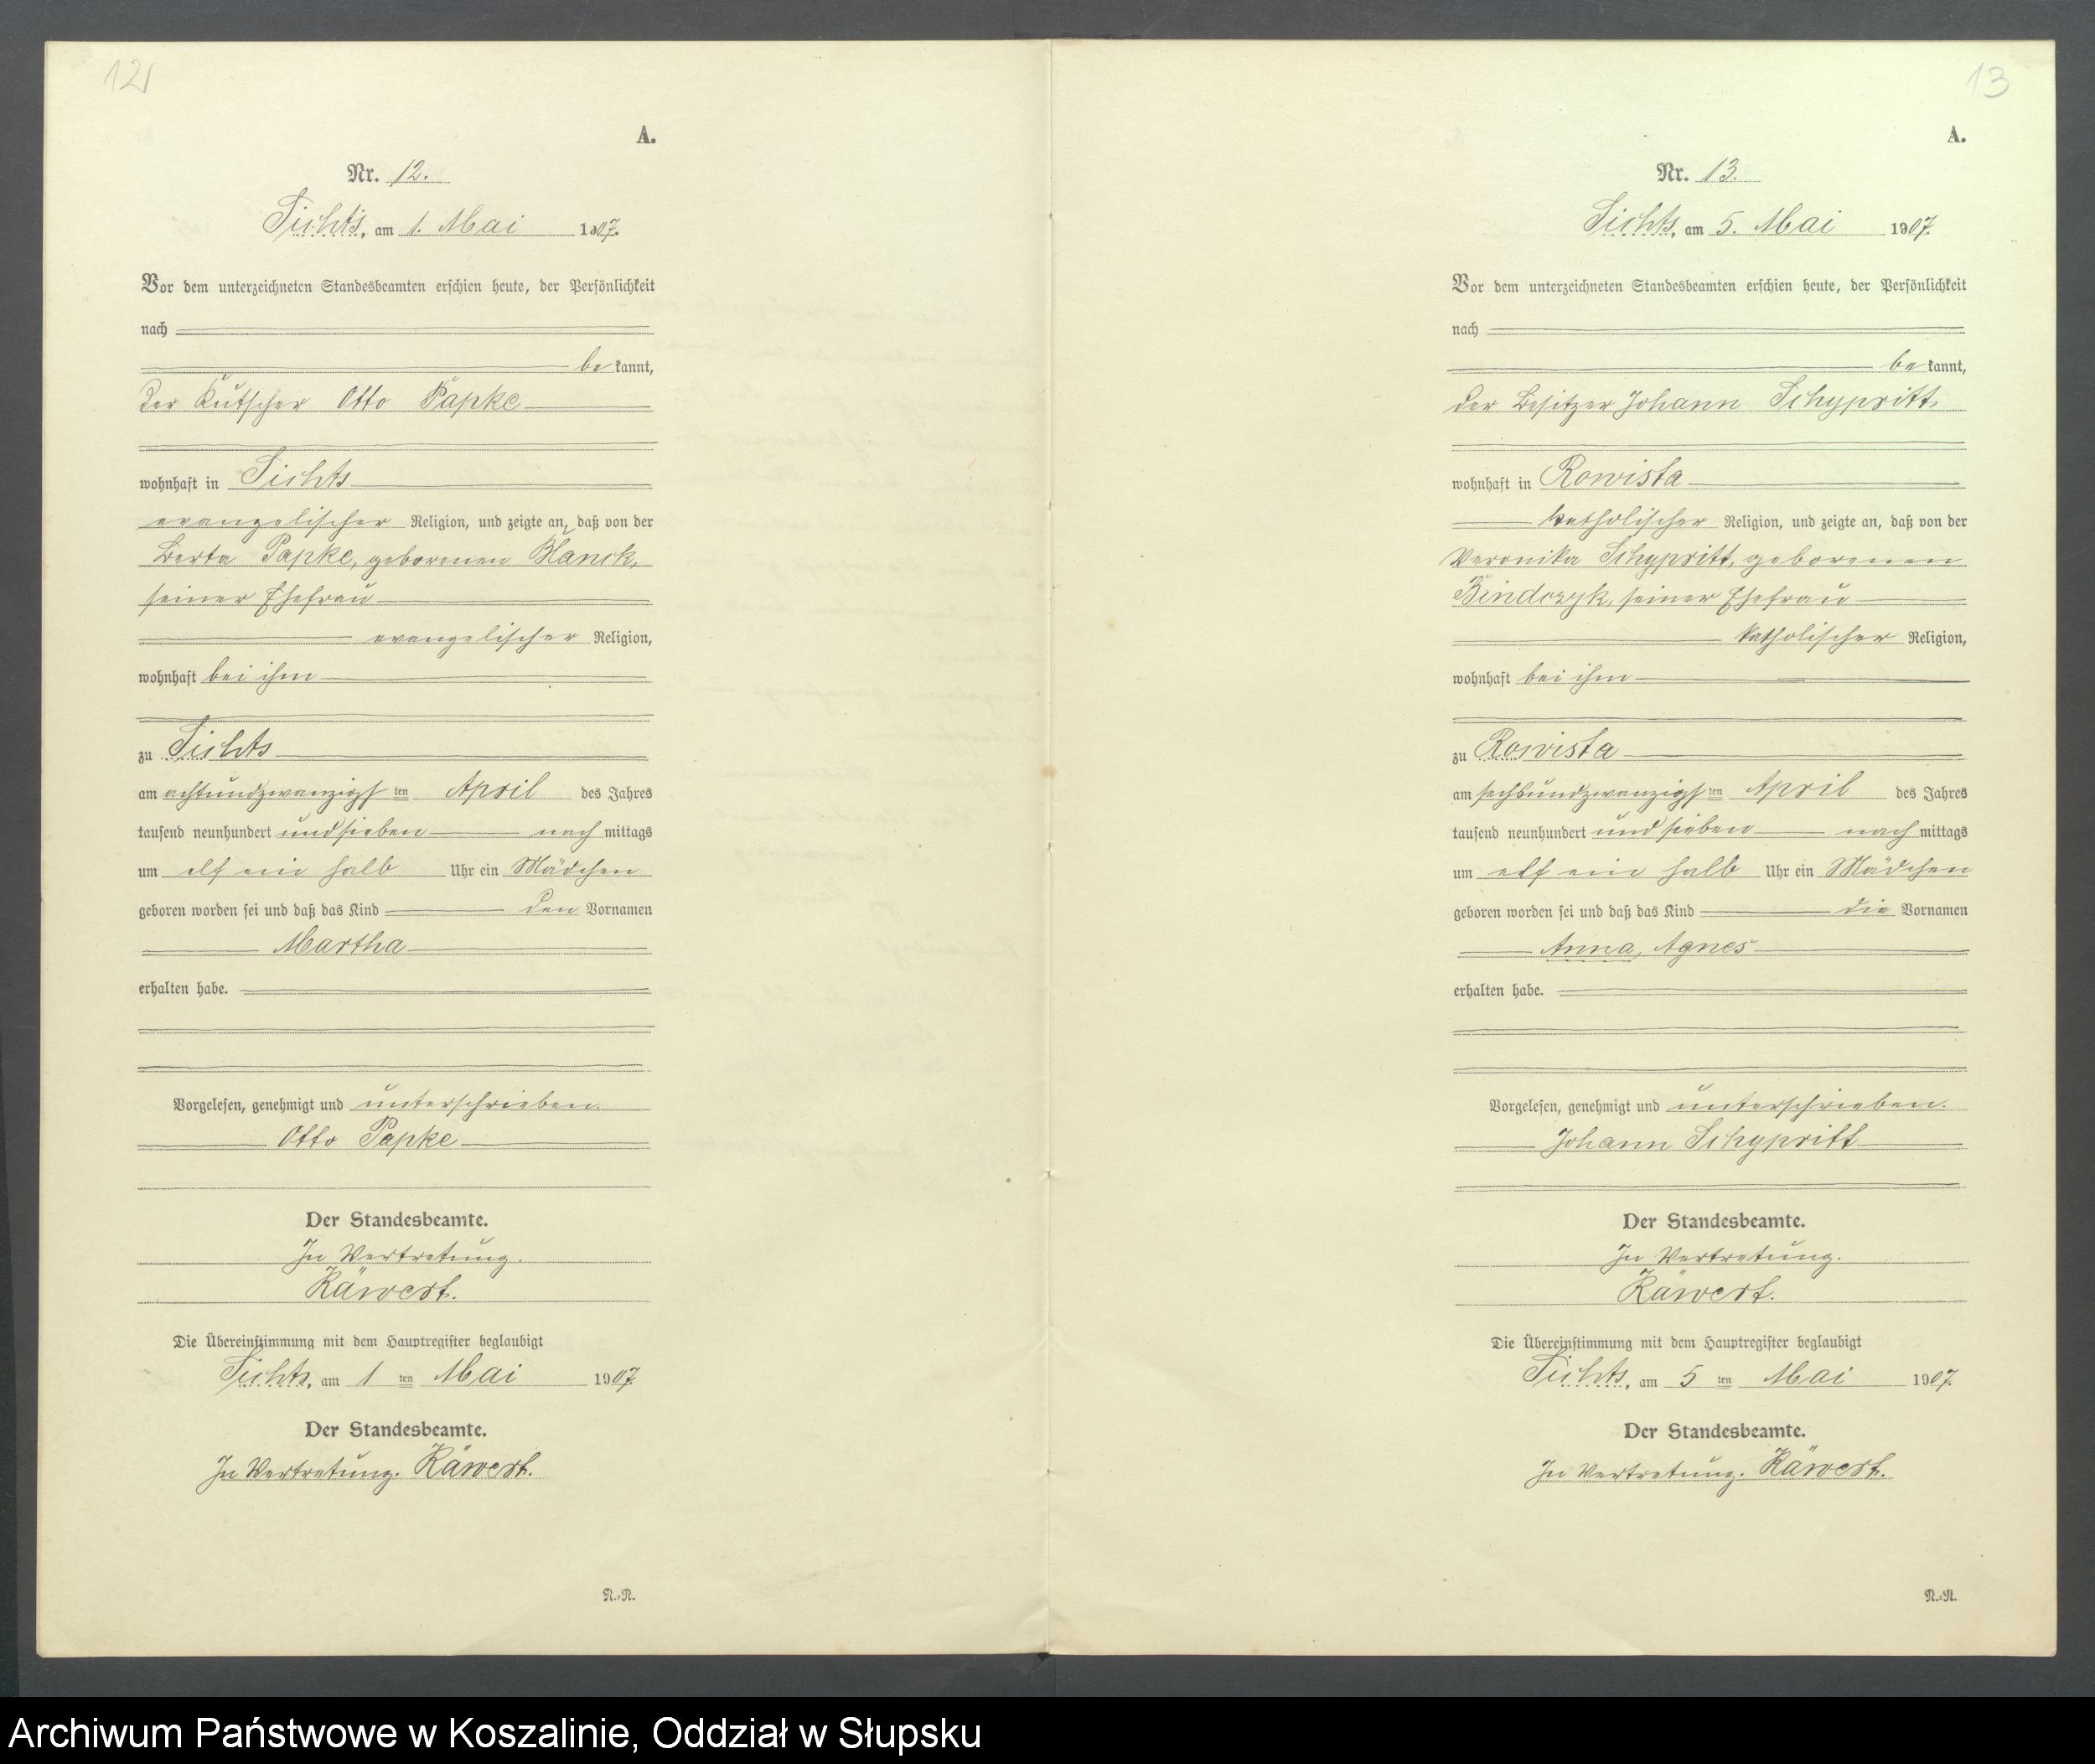 12
A.
Nr. 12.
Sichts, am 1. Mai 1907.
Vor dem unterzeichneten Standesbeamten erschien heute, der Persönlichkeit
nach
be kannt,
der Kutscher Otto Papke
wohnhaft in Sichts
evangelischer Religion, und zeigte an, daß von der
Berta Papke, geborenen Blanck,
seiner Ehefrau
evangelischer Religion,
wohnhaft bei ihm
zu Sichts
am achtundzwanzigsten April des Jahres
tausend neunhundert und sieben nach mittags
um elf ein halb Uhr ein Mädchen
geboren worden sei und daß das Kind den Vornamen
Martha
erhalten habe.
Vorgelesen, genehmigt und unterschrieben.
Otto Papke
Der Standesbeamte.
In Vertretung.
Räwert.
Die Übereinstimmung mit dem Hauptregister beglaubigt
Sichts, am 1 ten Mai 1907.
Der Standesbeamte.
In Vertretung. Räwert.
N.-R.
13
A.
Nr. 13.
Sichts, am 5. Mai 1907.
Vor dem unterzeichneten Standesbeamten erschien heute, der Persönlichkeit
nach
be kannt,
der Besitzer Johann Schypritt
wohnhaft in Rowista
katholischer Religion, und zeigte an, daß von der
Veronika Schypritt, geborenen
Bindczyk, seiner Ehefrau
katholischer Religion,
wohnhaft bei ihm
zu Rowista
am sechsundzwanzigsten April des Jahres
tausend neunhundert und sieben nach mittags
um elf ein halb Uhr ein Mädchen
geboren worden sei und daß das Kind die Vornamen
Anna, Agnes
erhalten habe.
Vorgelesen, genehmigt und unterschrieben.
Johann Schypritt
Der Standesbeamte.
In Vertretung.
Räwert.
Die Übereinstimmung mit dem Hauptregister beglaubigt
Sichts, am 5 ten Mai 1907.
Der Standesbeamte.
In Vertretung. Räwert.
N.-R.
Archiwum Państwowe w Koszalinie, Oddział w Słupsku